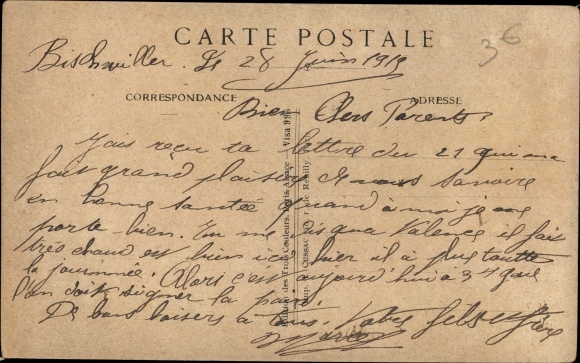 CARTE POSTALE
36
Bischwiller. Le 28 Juin 1919
CORRESPONDANCE
ADRESSE
Bien Chers Parents
Jais reçu ta lettre du 21 qui ma
fait grand plaisir de vous savoire
en bonne santée quand à moi je me
porte bien. Tu me dis qua Valence il fait
très chaud et bien ici hier il à plut toute
la journnée. Alors c'est aujourd'hui à 3h que
l'on doit signer la paix.
De bons baisers à tous. Votre fils
Édition des Trois Couleurs, Paris-Alsace
Visa 99